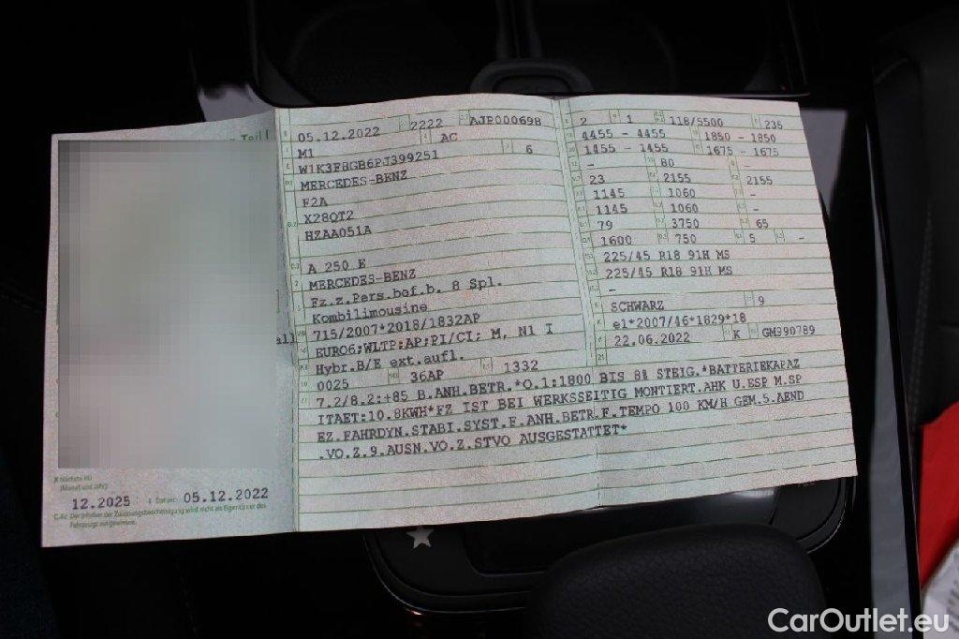 Teil I
B Nächste HU
(Monat und Jahr)
12.2025 I Datum: 05.12.2022
C.4c Der Inhaber der Zulassungsbescheinigung wird nicht als Eigentümer des
Fahrzeugs ausgewiesen.
05.12.2022 2222 AJP000698
M1 AC
W1K3F8GB6PJ399251 6
MERCEDES-BENZ
F2A
X28QT2
HZAA051A
A 250 E
MERCEDES-BENZ
Fz.z.Pers.bef.b. 8 Spl.
Kombilimousine
715/2007*2018/1832AP
EURO6;WLTP;AP;PI/CI; M, N1 I
Hybr.B/E ext.aufl.
0025 36AP 1332
2 1 118/5500 235
4455 - 4455 1850 - 1850
1455 - 1455 1675 - 1675
- 80 -
23 2155 2155
1145 1060 -
1145 1060 -
79 3750 65
1600 750 5 -
225/45 R18 91H MS
225/45 R18 91H MS
-
SCHWARZ 9
e1*2007/46*1829*18
22.06.2022 K GM390789
7.2/8.2:+85 B.ANH.BETR.*O.1:1800 BIS 8% STEIG.*BATTERIEKAPAZ
ITAET:10.8KWH*FZ IST BEI WERKSSEITIG MONTIERT.AHK U.ESP M.SP
EZ.FAHRDYN.STABI.SYST.F.ANH.BETR.F.TEMPO 100 KM/H GEM.5.AEND
.VO.Z.9.AUSN.VO.Z.STVO AUSGESTATTET*
CarOutlet.eu